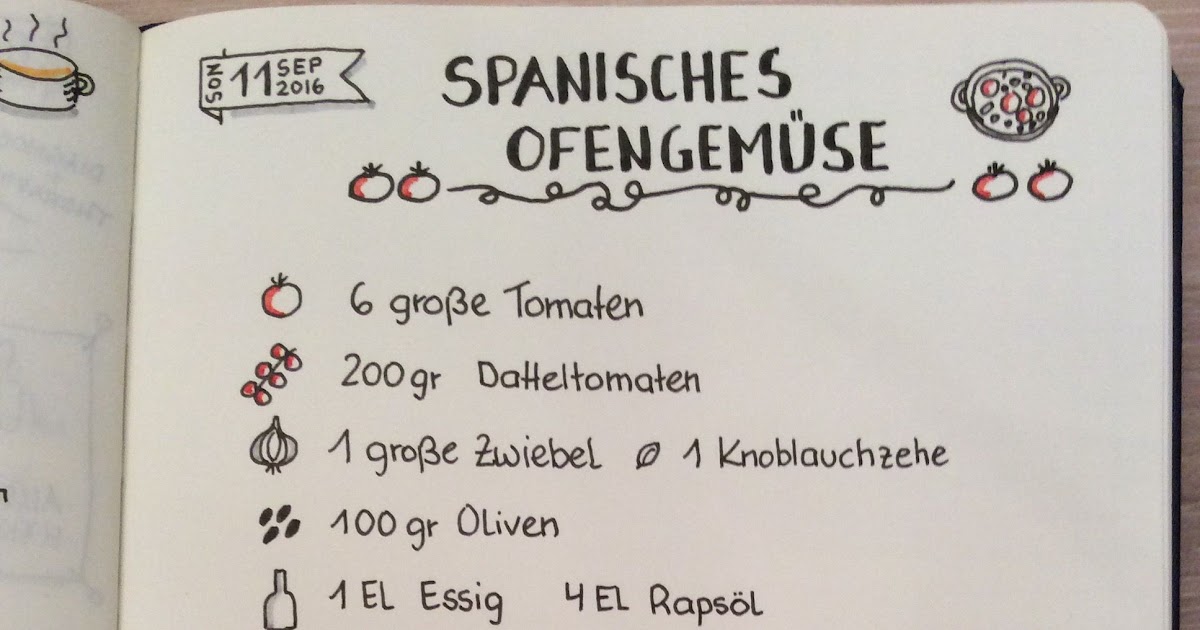 SON 11 SEP 2016
SPANISCHES
OFENGEMÜSE
6 große Tomaten
200gr Datteltomaten
1 große Zwiebel 1 Knoblauchzehe
100gr Oliven
1 EL Essig 4 EL Rapsöl